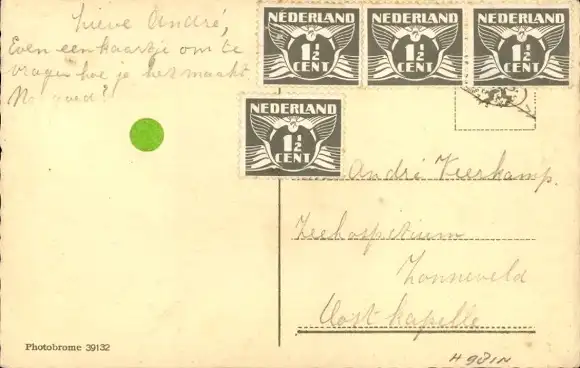 Lieve André,
Even een kaartje om te
vragen hoe je het maakt.
No goed?
NEDERLAND
1 1/2
CENT
NEDERLAND
1 1/2
CENT
NEDERLAND
1 1/2
CENT
NEDERLAND
1 1/2
CENT
André Vierkamp.
Zeehospitium
Zonneveld
Oostkapelle
Photobrome 39132